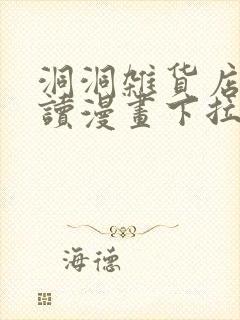 洞洞雜貨店
讀漫畫下拉
海德